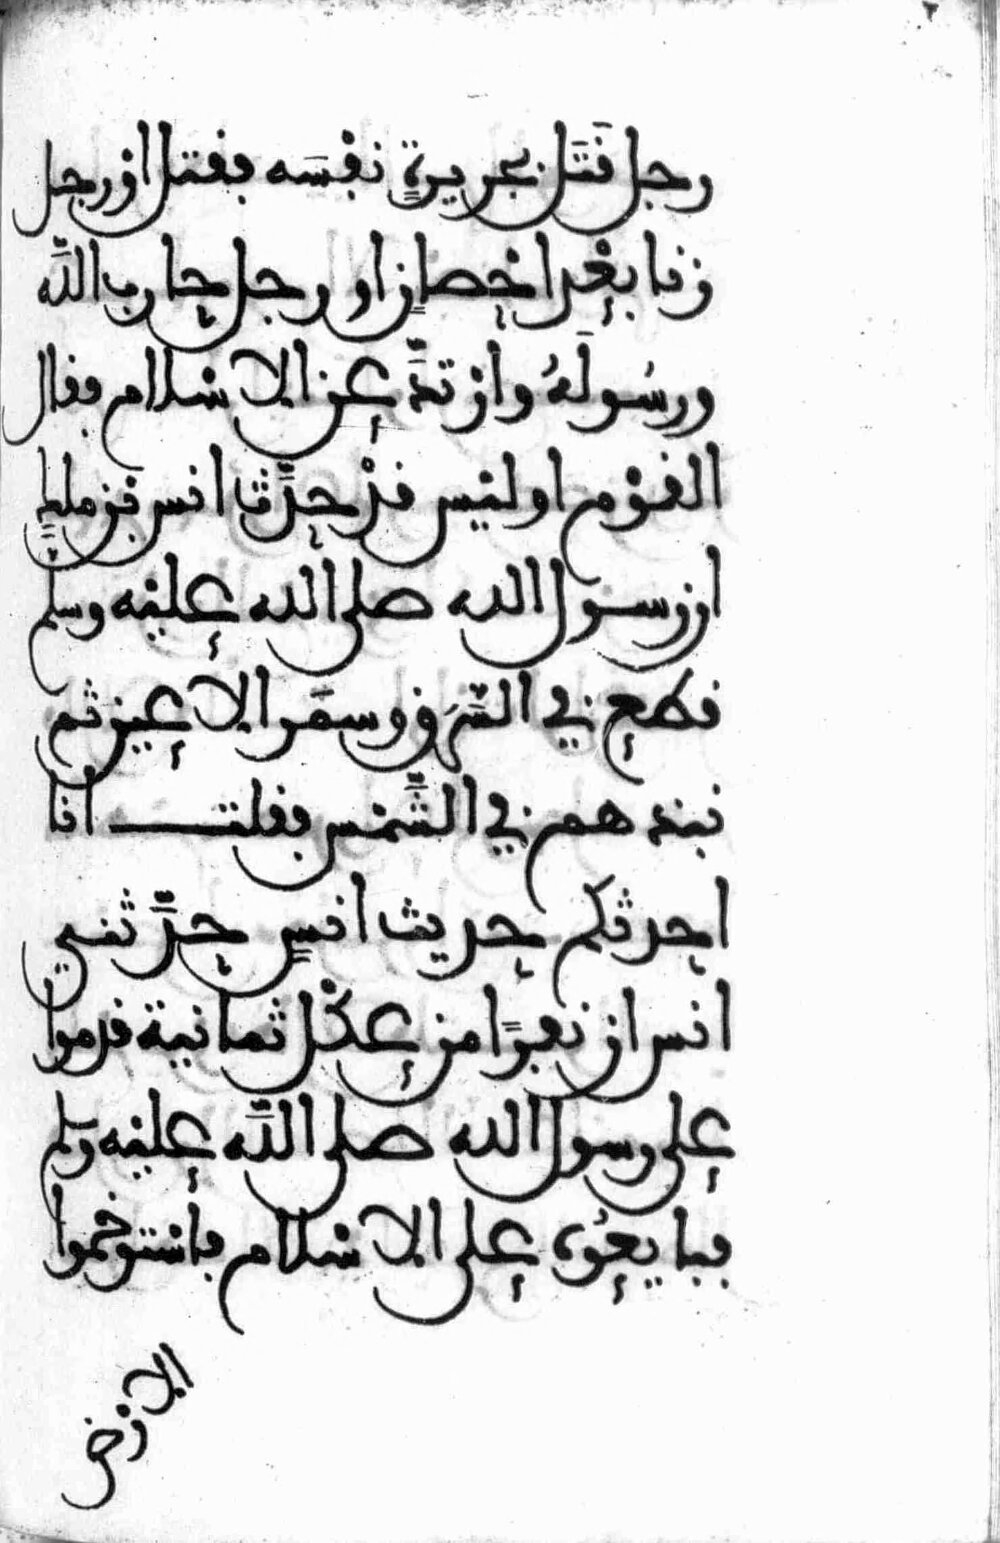 رجل قَتَل بجريرةِ نفْسَه فقتل اوْ رجل
زنا بعْد احْصانٍ او رجل حارب اللَّه
ورسُولَهُ وارْتدَّ عن الاسْلام فقال
القوْم اوليْس قدْ حدَّثنا انس بْن ملكٍ
ان رسول الله صلى الله عليْه وسلم
قطع في السَّرَق وسمَر الاعين ثم
نبذهم في الشَّمْس فقلت انا
احدثكم حديث انسٍ حدَّثني
انس ان نفرًا من عكْل ثمانية قدموا
على رسول الله صلى اللَّه عليْه وسلم
فبايعُوه على الاسْلام فاسْتوخموا
الارْض